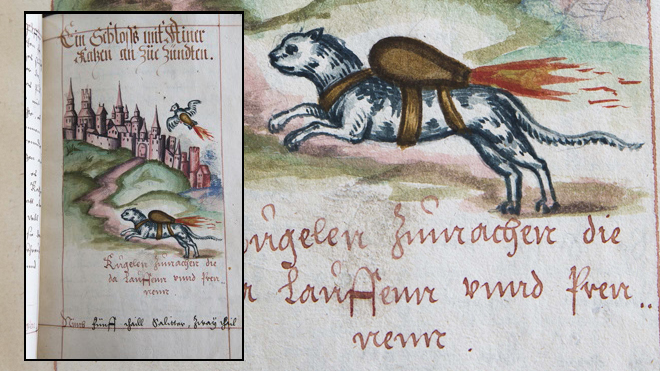 Ein Schloß mit Einer
Katzen an züe zündten.
Kugelen Zumachen die
da Lauffenn vnnd Pren
nenn
fünff thaill Saliter, zway thail
ugelen Zumachen die
Lauffenn vnnd Pren..
nenn.